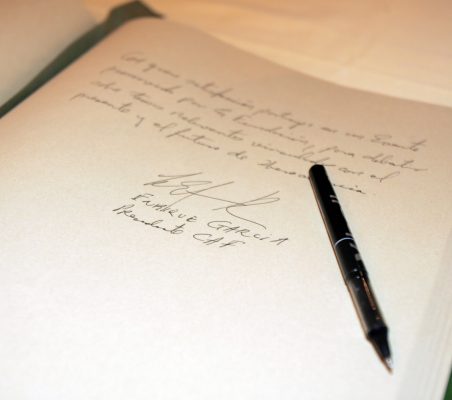 Con gran satisfacción participo en un Evento
promovido por la Fundación, para debatir
sobre temas relevantes vinculados con el
presente y el futuro de Iberoamérica.
ENRIQUE GARCIA
Presidente CAF